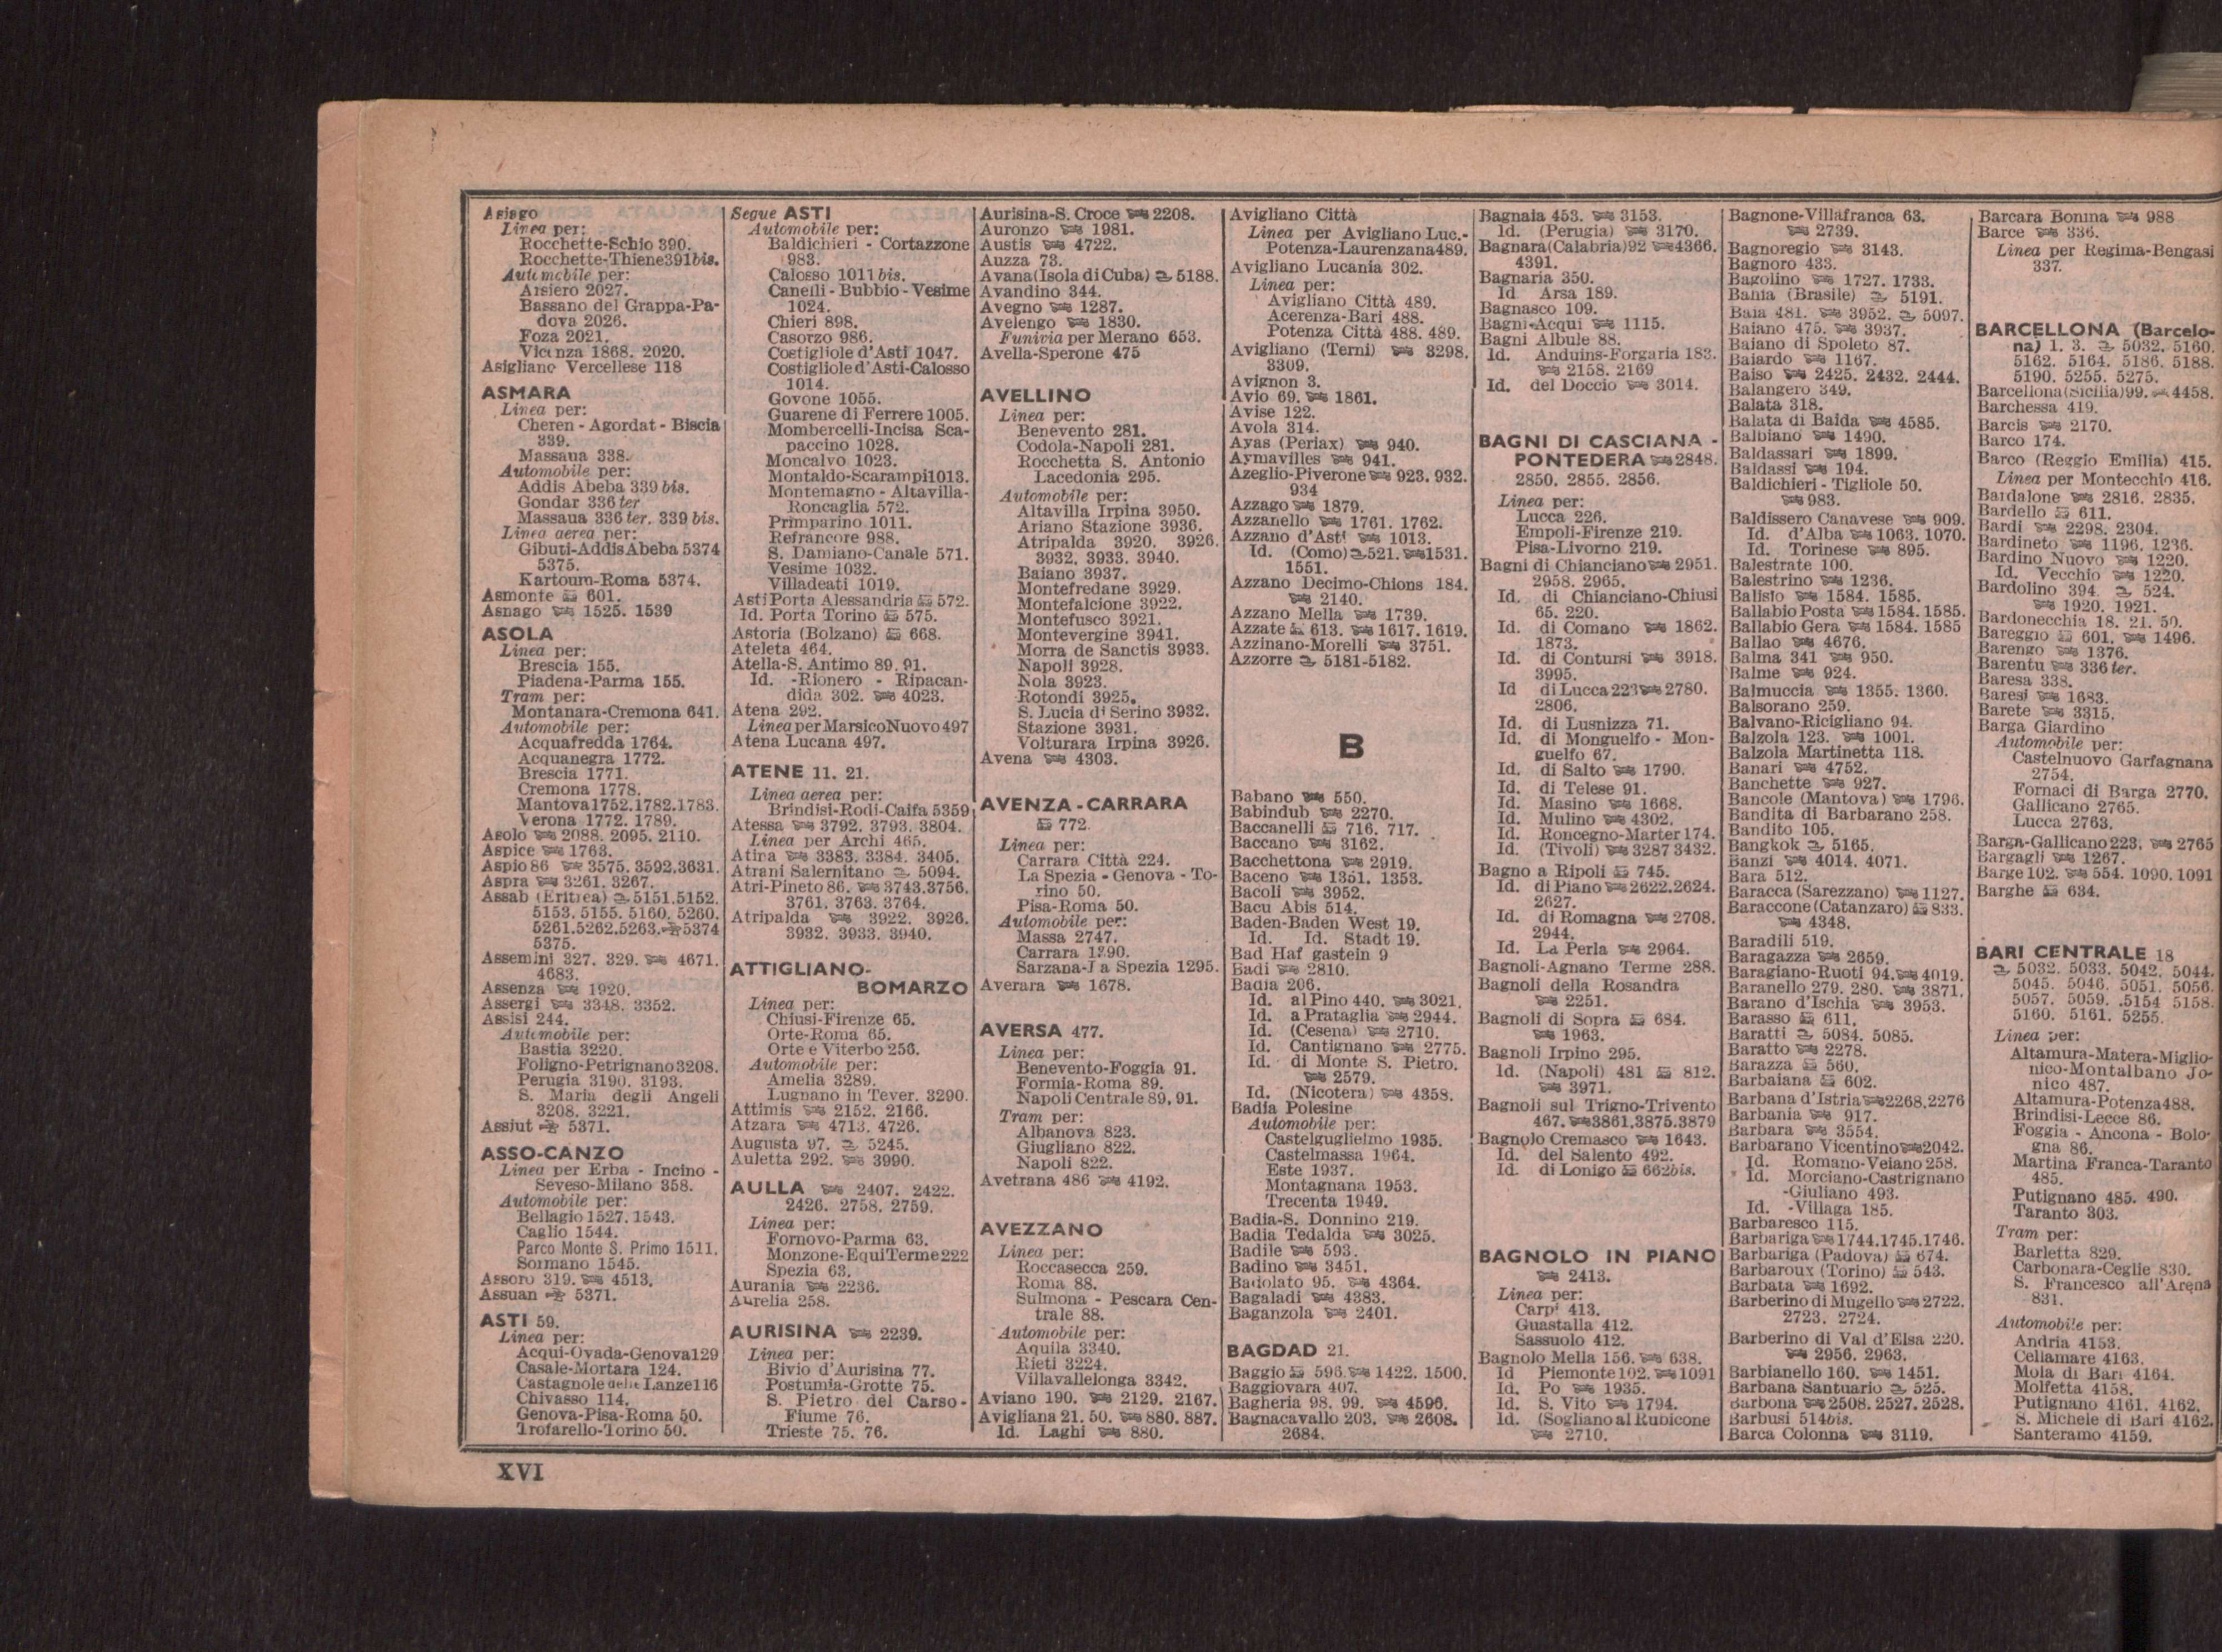 Asiago
Linea per:
Rocchette-Schio 390.
Rocchette-Thiene 391 bis.
Automobile per:
Arsiero 2027.
Bassano del Grappa-Pa-
dova 2026.
Foza 2021.
Vicenza 1868. 2020.
Asigliano Vercellese 118
ASMARA
Linea per:
Cheren - Agordat - Biscia
339.
Massaua 338.
Automobile per:
Addis Abeba 339 bis.
Gondar 336 ter
Massaua 336 ter. 339 bis.
Linea aerea per:
Gibuti-Addis Abeba 5374
5375.
Kartoum-Roma 5374.
Asmonte 601.
Asnago 1525. 1539
ASOLA
Linea per:
Brescia 155.
Piadena-Parma 155.
Tram per:
Montanara-Cremona 641.
Automobile per:
Acquafredda 1764.
Acquanegra 1772.
Brescia 1771.
Cremona 1778.
Mantova 1752. 1782. 1783.
Verona 1772. 1789.
Asolo 2088. 2095. 2110.
Aspice 1763.
Aspio 86 3575. 3592. 3631.
Aspra 3261. 3267.
Assab (Eritrea) 5151. 5152.
5153. 5155. 5160. 5260.
5261. 5262. 5263. 5374
5375.
Assemini 327. 329. 4671.
4683.
Assenza 1920.
Assergi 3348. 3352.
Assisi 244.
Automobile per:
Bastia 3220.
Foligno-Petrignano 3208.
Perugia 3190. 3193.
S. Maria degli Angeli
3208. 3221.
Assiut 5371.
ASSO-CANZO
Linea per Erba - Incino -
Seveso-Milano 358.
Automobile per:
Bellagio 1527. 1543.
Caglio 1544.
Parco Monte S. Primo 1511.
Sormano 1545.
Assoro 319. 4513.
Assuan 5371.
ASTI 59.
Linea per:
Acqui-Ovada-Genova 129
Casale-Mortara 124.
Castagnole delle Lanze 116
Chivasso 114.
Genova-Pisa-Roma 50.
Trofarello-Torino 50.
Segue ASTI
Automobile per:
Baldichieri - Cortazzone
983.
Calosso 1011 bis.
Canelli - Bubbio - Vesime
1024.
Chieri 898.
Casorzo 986.
Costigliole d'Asti 1047.
Costigliole d'Asti-Calosso
1014.
Govone 1055.
Guarene di Ferrere 1005.
Mombercelli-Incisa Sca-
paccino 1028.
Moncalvo 1023.
Montaldo-Scarampi 1013.
Montemagno - Altavilla-
Roncaglia 572.
Primparino 1011.
Refrancore 988.
S. Damiano-Canale 571.
Vesime 1032.
Villadeati 1019.
Asti Porta Alessandria 572.
Id. Porta Torino 575.
Astoria (Bolzano) 668.
Ateleta 464.
Atella-S. Antimo 89. 91.
Id. -Rionero - Ripacan-
dida 302. 4023.
Atena 292.
Linea per Marsico Nuovo 497
Atena Lucana 497.
ATENE 11. 21.
Linea aerea per:
Brindisi-Rodi-Caifa 5359
Atessa 3792. 3793. 3804.
Linea per Archi 465.
Atina 3383. 3384. 3405.
Atrani Salernitano 5094.
Atri-Pineto 86. 3743. 3756.
3761. 3763. 3764.
Atripalda 3922. 3926.
3932. 3933. 3940.
ATTIGLIANO-
BOMARZO
Linea per:
Chiusi-Firenze 65.
Orte-Roma 65.
Orte e Viterbo 256.
Automobile per:
Amelia 3289.
Lugnano in Tever. 3290.
Attimis 2152. 2166.
Atzara 4713. 4726.
Augusta 97. 5245.
Auletta 292. 3990.
AULLA 2407. 2422.
2426. 2758. 2759.
Linea per:
Fornovo-Parma 63.
Monzone-Equi Terme 222
Spezia 63.
Aurania 2236.
Aurelia 258.
AURISINA 2239.
Linea per:
Bivio d'Aurisina 77.
Postumia-Grotte 75.
S. Pietro del Carso-
Fiume 76.
Trieste 75. 76.
Aurisina-S. Croce 2208.
Auronzo 1981.
Austis 4722.
Auzza 73.
Avana (Isola di Cuba) 5188.
Avandino 344.
Avegno 1287.
Avelengo 1830.
Funivia per Merano 653.
Avella-Sperone 475
AVELLINO
Linea per:
Benevento 281.
Codola-Napoli 281.
Rocchetta S. Antonio
Lacedonia 295.
Automobile per:
Altavilla Irpina 3950.
Ariano Stazione 3936.
Atripalda 3920. 3926.
3932. 3933. 3940.
Baiano 3937.
Montefredane 3929.
Montefalcione 3922.
Montefusco 3921.
Montevergine 3941.
Morra de Sanctis 3933.
Napoli 3928.
Nola 3923.
Rotondi 3925.
S. Lucia di Serino 3932.
Stazione 3931.
Volturara Irpina 3926.
Avena 4303.
AVENZA-CARRARA
772.
Linea per:
Carrara Città 224.
La Spezia - Genova - To-
rino 50.
Pisa-Roma 50.
Automobile per:
Massa 2747.
Carrara 1290.
Sarzana-La Spezia 1295.
Averara 1678.
AVERSA 477.
Linea per:
Benevento-Foggia 91.
Formia-Roma 89.
Napoli Centrale 89, 91.
Tram per:
Albanova 823.
Giugliano 822.
Napoli 822.
Avetrana 486 4192.
AVEZZANO
Linea per:
Roccasecca 259.
Roma 88.
Sulmona - Pescara Cen-
trale 88.
Automobile per:
Aquila 3340.
Rieti 3224.
Villavallelonga 3342.
Aviano 190. 2129. 2167.
Avigliana 21. 50. 880. 887.
Id. Laghi 880.
Avigliano Città
Linea per Avigliano Luc.-
Potenza-Laurenzana 489.
Avigliano Lucania 302.
Linea per:
Avigliano Città 489.
Acerenza-Bari 488.
Potenza Città 488. 489.
Avigliano (Terni) 3298.
3309.
Avignon 3.
Avio 69. 1861.
Avise 122.
Avola 314.
Ayas (Periax) 940.
Aymavilles 941.
Azeglio-Piverone 923. 932.
934
Azzago 1879.
Azzanello 1761. 1762.
Azzano d'Asti 1013.
Id. (Como) 521. 1531.
1551.
Azzano Decimo-Chions 184.
2140.
Azzano Mella 1739.
Azzate 613. 1617. 1619.
Azzinano-Morelli 3751.
Azzorre 5181-5182.
B
Babano 550.
Babindub 2270.
Baccanelli 716. 717.
Baccano 3162.
Bacchettona 2919.
Baceno 1351. 1353.
Bacoli 3952.
Bacu Abis 514.
Baden-Baden West 19.
Id. Id. Stadt 19.
Bad Haf gastein 9
Badi 2810.
Badia 206.
Id. al Pino 440. 3021.
Id. a Prataglia 2944.
Id. (Cesena) 2710.
Id. Cantignano 2775.
Id. di Monte S. Pietro.
2579.
Id. (Nicotera) 4358.
Badia Polesine
Automobile per:
Castelguglielmo 1935.
Castelmassa 1964.
Este 1937.
Montagnana 1953.
Trecenta 1949.
Badia-S. Donnino 219.
Badia Tedalda 3025.
Badile 593.
Badino 3451.
Badolato 95. 4364.
Bagaladi 4383.
Baganzola 2401.
BAGDAD 21.
Baggio 596. 1422. 1500.
Baggiovara 407.
Bagheria 98. 99. 4596.
Bagnacavallo 203. 2608.
2684.
Bagnaia 453. 3153.
Id. (Perugia) 3170.
Bagnara (Calabria) 92 4366.
4391.
Bagnaria 350.
Id Arsa 189.
Bagnasco 109.
Bagni-Acqui 1115.
Bagni Albule 88.
Id. Anduins-Forgaria 183.
2158. 2169
Id. del Doccio 3014.
BAGNI DI CASCIANA -
PONTEDERA 2848.
2850. 2855. 2856.
Linea per:
Lucca 226.
Empoli-Firenze 219.
Pisa-Livorno 219.
Bagni di Chianciano 2951.
2958. 2965.
Id. di Chianciano-Chiusi
65. 220.
Id. di Comano 1862.
1873.
Id. di Contursi 3918.
3995.
Id di Lucca 223 2780.
2806.
Id. di Lusnizza 71.
Id. di Monguelfo - Mon-
guelfo 67.
Id. di Salto 1790.
Id. di Telese 91.
Id. Masino 1668.
Id. Mulino 4302.
Id. Roncegno-Marter 174.
Id. (Tivoli) 3287 3432.
Bagno a Ripoli 745.
Id. di Piano 2622. 2624.
2627.
Id. di Romagna 2708.
2944.
Id. La Perla 2964.
Bagnoli-Agnano Terme 288.
Bagnoli della Rosandra
2251.
Bagnoli di Sopra 684.
1963.
Bagnoli Irpino 295.
Id. (Napoli) 481 812.
3971.
Bagnoli sul Trigno-Trivento
467. 3861. 3875. 3879
Bagnolo Cremasco 1643.
Id. del Salento 492.
Id. di Lonigo 662bis.
BAGNOLO IN PIANO
2413.
Linea per:
Carpi 413.
Guastalla 412.
Sassuolo 412.
Bagnolo Mella 156. 638.
Id Piemonte 102. 1091
Id. Po 1935.
Id. S. Vito 1794.
Id. (Sogliano al Rubicone
2710.
Bagnone-Villafranca 63.
2739.
Bagnoregio 3143.
Bagnoro 433.
Bagolino 1727. 1733.
Bahia (Brasile) 5191.
Baia 481. 3952. 5097.
Baiano 475. 3937.
Baiano di Spoleto 87.
Baiardo 1167.
Baiso 2425. 2432. 2444.
Balangero 349.
Balata 318.
Balata di Baida 4585.
Balbiano 1490.
Baldassari 1899.
Baldassi 194.
Baldichieri - Tigliole 50.
983.
Baldissero Canavese 909.
Id. d'Alba 1063. 1070.
Id. Torinese 895.
Balestrate 100.
Balestrino 1236.
Balisio 1584. 1585.
Ballabio Posta 1584. 1585.
Ballabio Gera 1584. 1585
Ballao 4676.
Balma 341 950.
Balme 924.
Balmuccia 1355. 1360.
Balsorano 259.
Balvano-Ricigliano 94.
Balzola 123. 1001.
Balzola Martinetta 118.
Banari 4752.
Banchette 927.
Bancole (Mantova) 1796.
Bandita di Barbarano 258.
Bandito 105.
Bangkok 5165.
Banzi 4014. 4071.
Bara 512.
Baracca (Sarezzano) 1127.
Baraccone (Catanzaro) 833.
4348.
Baradili 519.
Baragazza 2659.
Baragiano-Ruoti 94. 4019.
Baranello 279. 280. 3871.
Barano d'Ischia 3953.
Barasso 611.
Baratti 5084. 5085.
Baratto 2278.
Barazza 560.
Barbaiana 602.
Barbana d'Istria 2268. 2276
Barbania 917.
Barbara 3554.
Barbarano Vicentino 2042.
Id. Romano-Veiano 258.
Id. Morciano-Castrignano
-Giuliano 493.
Id. -Villaga 185.
Barbaresco 115.
Barbariga 1744. 1745. 1746.
Barbariga (Padova) 674.
Barbaroux (Torino) 543.
Barbata 1692.
Barberino di Mugello 2722.
2723. 2724.
Barberino di Val d'Elsa 220.
2956. 2963.
Barbianello 160. 1451.
Barbana Santuario 525.
Barbona 2508. 2527. 2528.
Barbusi 514bis.
Barca Colonna 3119.
Barcara Bonina 988
Barce 336.
Linea per Regima-Bengasi
337.
BARCELLONA (Barcelo-
na) 1. 3. 5032. 5160.
5162. 5164. 5186. 5188.
5190. 5255. 5275.
Barcellona (Sicilia) 99. 4458.
Barchessa 419.
Barcis 2170.
Barco 174.
Barco (Reggio Emilia) 415.
Linea per Montecchio 416.
Bardalone 2816. 2835.
Bardello 611.
Bardi 2298. 2304.
Bardineto 1196. 1236.
Bardino Nuovo 1220.
Id. Vecchio 1220.
Bardolino 394. 524.
1920. 1921.
Bardonecchia 18. 21. 50.
Bareggio 601. 1496.
Barengo 1376.
Barentu 336 ter.
Baresa 338.
Baresi 1683.
Barete 3315.
Barga Giardino
Automobile per:
Castelnuovo Garfagnana
2754.
Fornaci di Barga 2770.
Gallicano 2765.
Lucca 2763.
Barga-Gallicano 223. 2765
Bargagli 1267.
Barge 102. 554. 1090. 1091
Barghe 634.
BARI CENTRALE 18
5032. 5033. 5042. 5044.
5045. 5046. 5051. 5056.
5057. 5059. 5154 5158.
5160. 5161. 5255.
Linea per:
Altamura-Matera-Miglio-
nico-Montalbano Jo-
nico 487.
Altamura-Potenza 488.
Brindisi-Lecce 86.
Foggia - Ancona - Bolo-
gna 86.
Martina Franca-Taranto
485.
Putignano 485. 490.
Taranto 303.
Tram per:
Barletta 829.
Carbonara-Ceglie 830.
S. Francesco all'Arena
831.
Automobile per:
Andria 4153.
Cellamare 4163.
Mola di Bari 4164.
Molfetta 4158.
Putignano 4161. 4162.
S. Michele di Bari 4162.
Santeramo 4159.
XVI